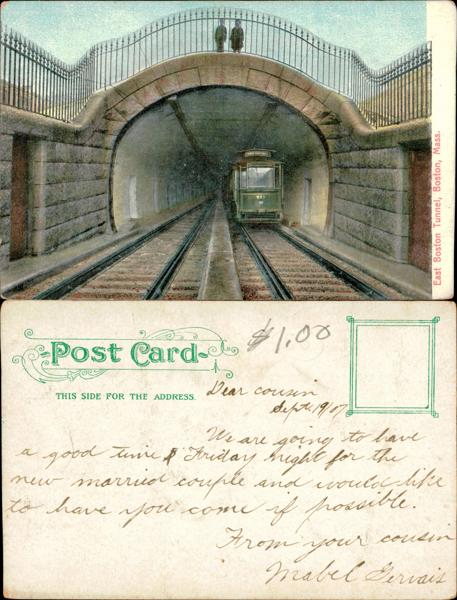 East Boston Tunnel, Boston, Mass.
Post Card
$1.00
THIS SIDE FOR THE ADDRESS.
Dear cousin
Sept. 19/07
We are going to have
a good time Friday night for the
new married couple and would like
to have you come if possible.
From your cousin
Mabel Gervais